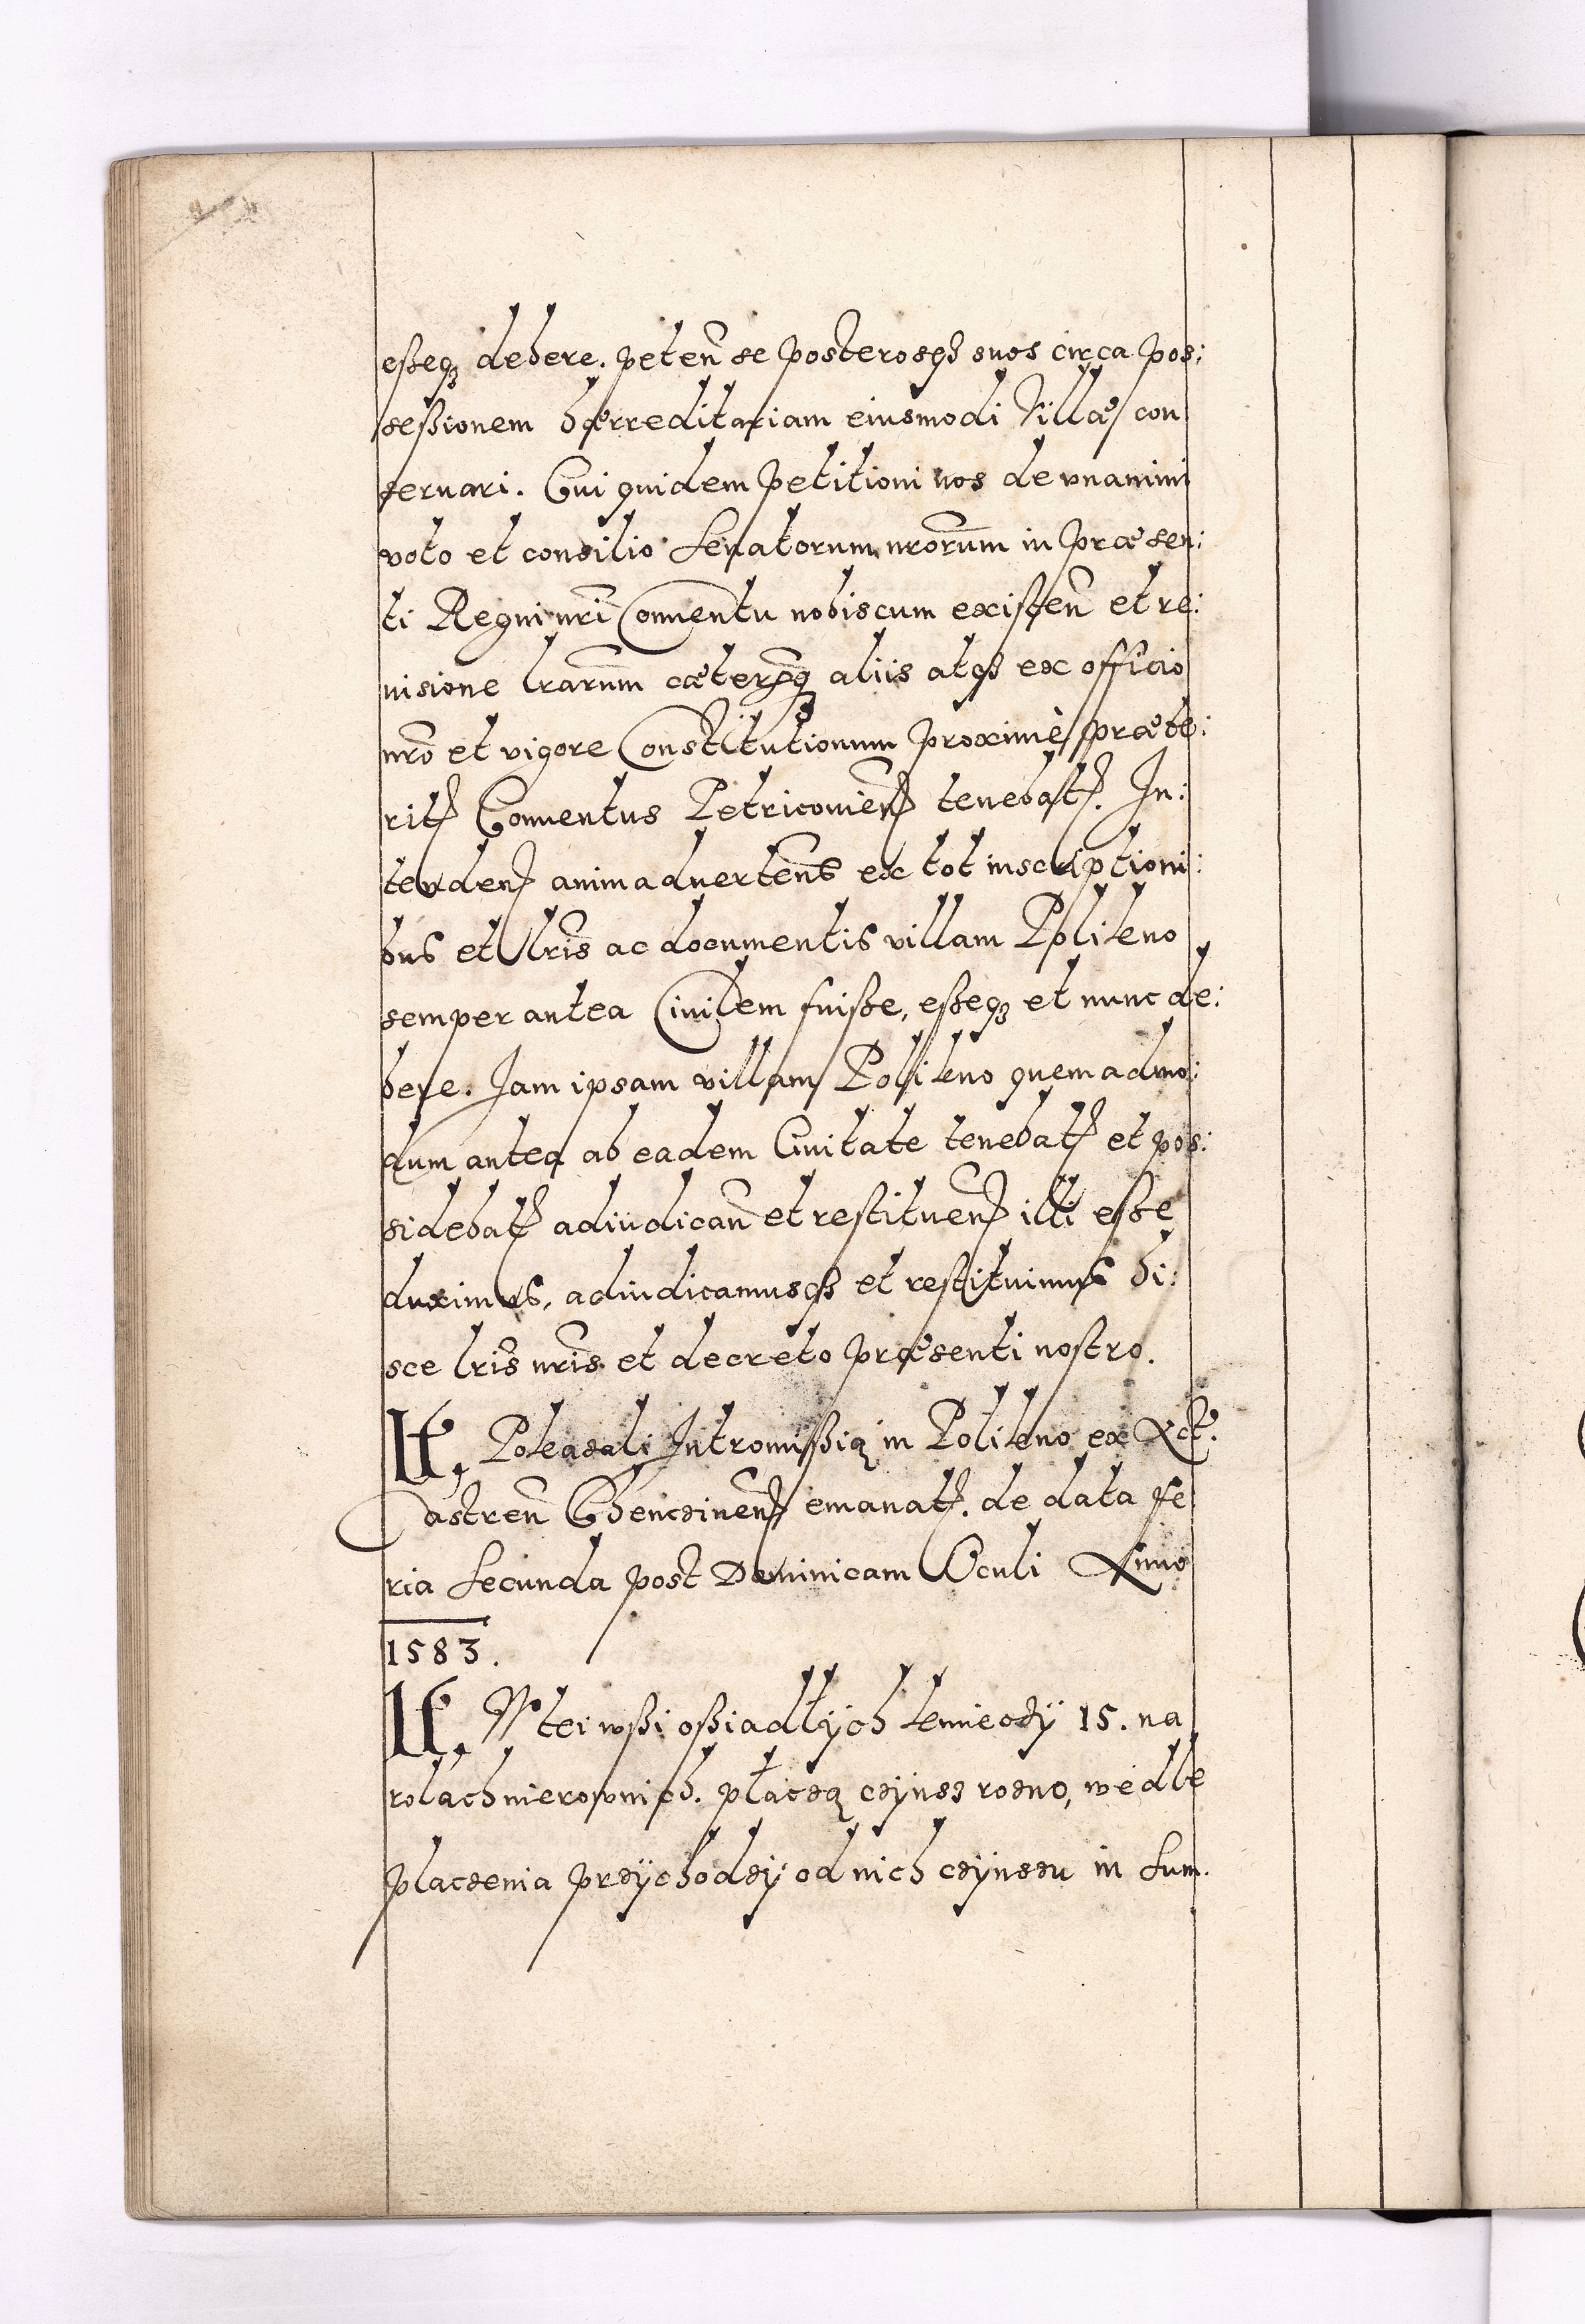 eßeqꝫ debere. peteñ se posterosqꝫ suos circa pos:
seßionem hærreditariam eiusmodi Villæ con
seruari. Cui quidem petitioni nos de vnanimi
voto et consilio Senatorum nrorum in præsen:
ti Regni nri Conuentu nobiscum existeñ et re:
uisione lrarum cæterisqꝫ aliis atqꝫ ex officio
nro et vigore Constitutionum proximè præte:
rit Conuentus Petricouien tenebat. In:
tenden animaduertens ex tot inscriptioni:
bus et lris ac documentis villam Polikno
semper antea Ciuilem fuiße, eßeqꝫ et nunc de:
bere. Jam ipsam villam Polikno quemadmo:
dum antea ab eadem Ciuitate tenebat et pos:
sidebat adiudicañ et restituen illi eße
duximus, adiudicamusqꝫ et restituimus hi:
sce lris nris et decreto præsenti nostro.
It. Pokazali Intromißią in Polikno ex Act.
Castreñ Chencinen emanat. de data fe
ria Secunda post Dominicam Oculi Anno
1583.
It. W tei wßi oßiadłÿch kmieczÿ 15. na
rolach nierownich. płaczą czÿnsz rozno, wedle
płaczenia przÿchodzÿ od nich czÿnszu in Sum.